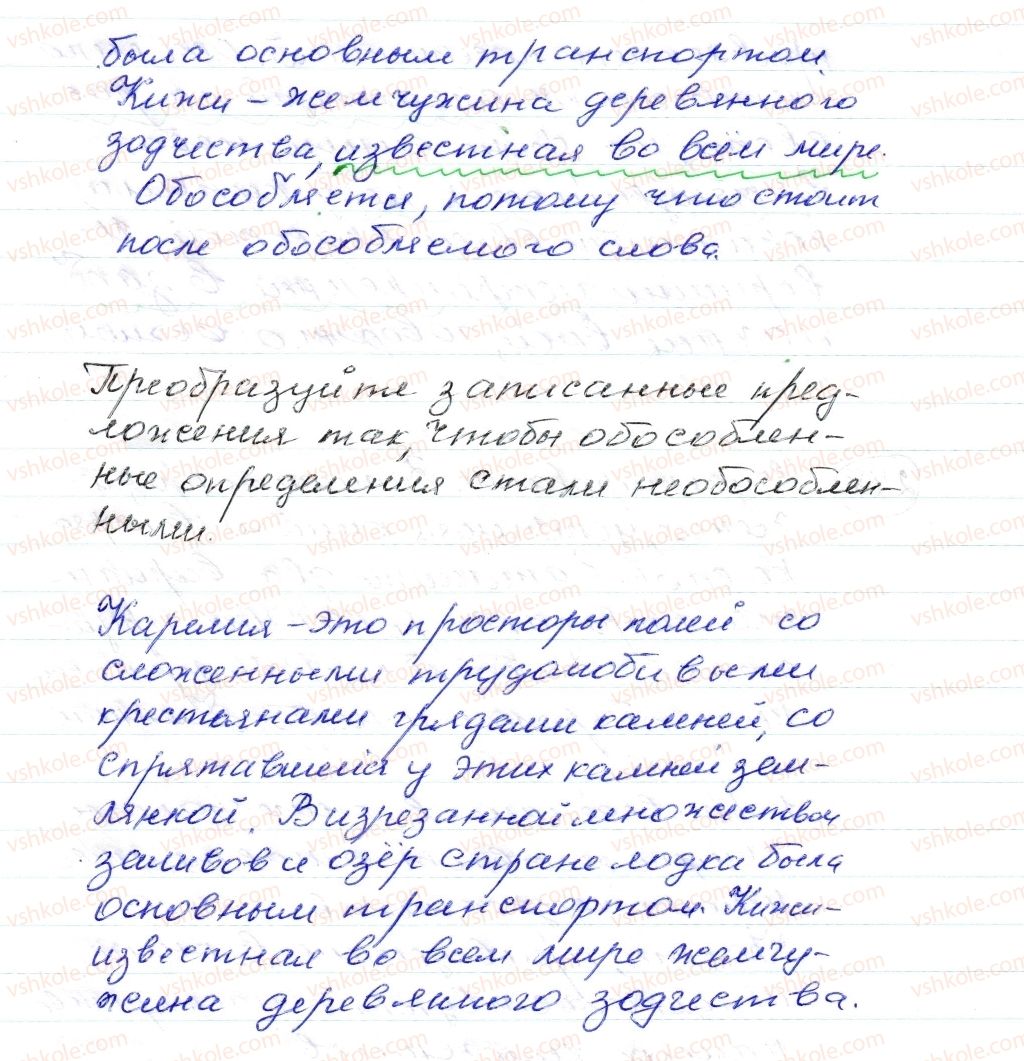 была основным транспортом.
Кижи – жемчужина деревянного
зодчества, известная во всём мире.
Обособляется, потому что стоит
после обособляемого слова.
Преобразуйте записанные пред-
ложения так, чтобы обособлен-
ные определения стали необособлен-
ными.
Карелия – это просторы полей со
сложенными трудолюбивыми
крестьянами грядами камней, со
спрятавшейся у этих камней зем-
лянкой. В изрезанной множеством
заливов и озёр стране лодка была
основным транспортом. Кижи –
известная во всем мире жемчу-
жина деревянного зодчества.